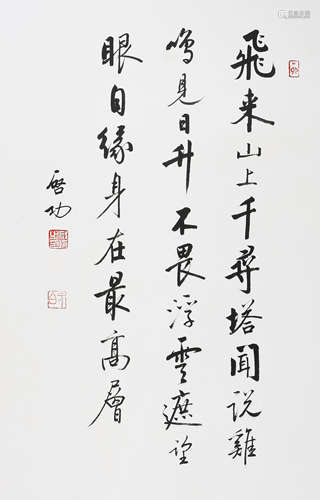 飛来山上千尋塔聞説雞
鳴見日升不畏浮雲遮望
眼自緣身在最高層
啓功